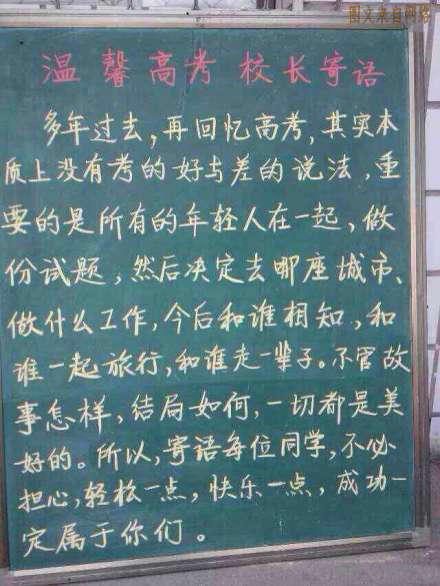 图文来自网络
温馨高考 校长寄语
多年过去，再回忆高考，其实本
质上没有考的好与差的说法，重
要的是所有的年轻人在一起，做
份试题，然后决定去哪座城市、
做什么工作，今后和谁相知，和
谁一起旅行，和谁走一辈子。不管故
事怎样，结局如何，一切都是美
好的。所以，寄语每位同学，不必
担心，轻松一点，快乐一点，成功一
定属于你们。